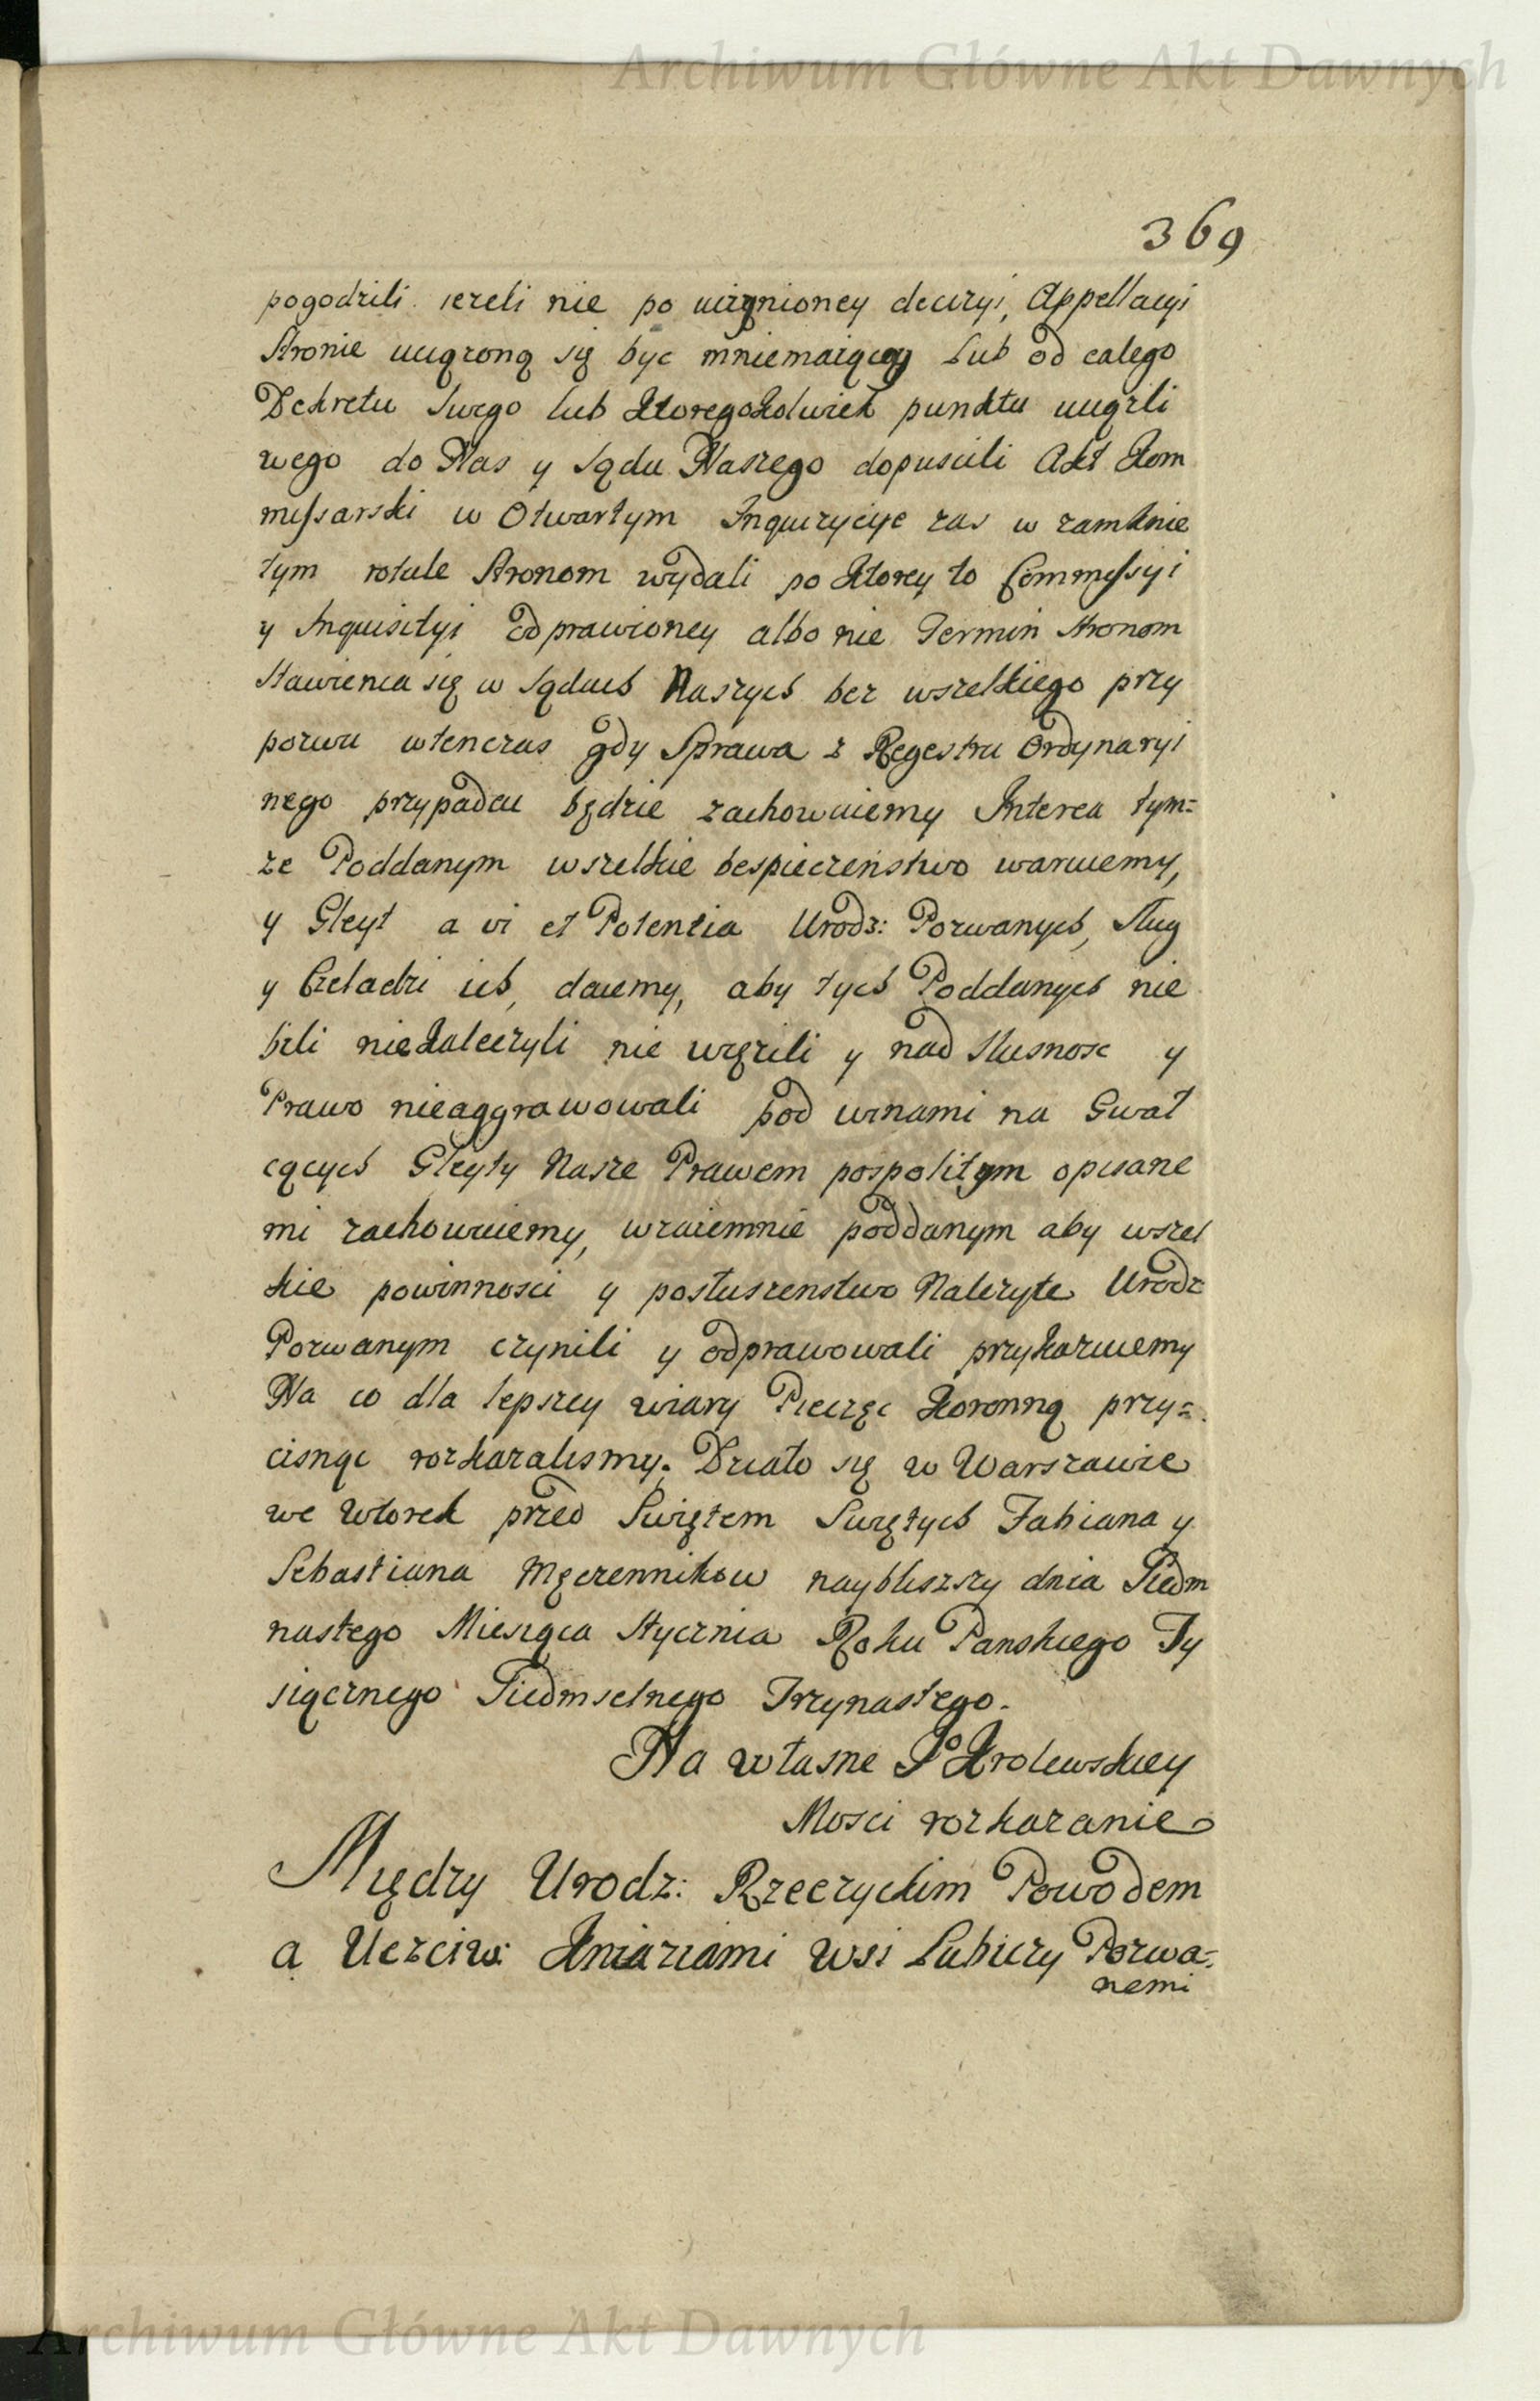 Archiwum Główne Akt Dawnych
369
pogodzili ieżeli nie po uczynioney decizyi, Appellacyi
Stronie uciązoną się byc mniemaiącey Lub od całego
Dekretu Swego lub ktoregokolwiek punktu uciązli
wego do Nas y Sądu Naszego dopuscili Akt Kom
missarski w Otwartym Inquizycye zas w zamknie
tym rotule Stronom wydali po ktorey to Commissyi
y Inquisityi odprawioney albo nie Termin Stronom
Stawienia się w Sądach Naszych bez wszelkiego przy
pozwu wtenczas gdy Sprawa z Regestru Ordynaryi
nego przypadać będzie zachowuiemy Interea tym=
ze Poddanym wszelkie bespieczeństwo waruiemy,
y Gleyt a vi et Potentia Urodz: Pozwanych, Sług
y Czeladzi ich, daiemy, aby tych Poddanych nie
bili niekaleczyli nie więzili y nad Słusnosc y
Prawo nieaggrawowali pod winami na Gwał
cących Gleyty Nasze Prawem pospolitym opisane
mi zachowuiemy, wzaiemnie poddanym aby wszel
kie powinnosci y posłuszenstwo Nalezyte Urodz
Pozwanym czynili y odprawowali przykazuiemy
Na co dla lepszey wiary Pieczęc Koronną przy=
cisnąc rozkazalismy. Działo się w Warszawie
we Wtorek przed Świętem Swiętych Fabiana y
Sebastiana Męczennikow naybliszszy dnia Siedm
nastego Miesiąca Stycznia Roku Panskiego Ty
siącznego Siedmsetnego Trzynastego.
Na własne Jo Krolewskiey
Mosci rozkazanie
Między Urodz: Rzeczyckim Powodem
a Uczciw: Kniaziami Wsi Lubiczy Pozwa=
nemi
Archiwum Główne Akt Dawnych